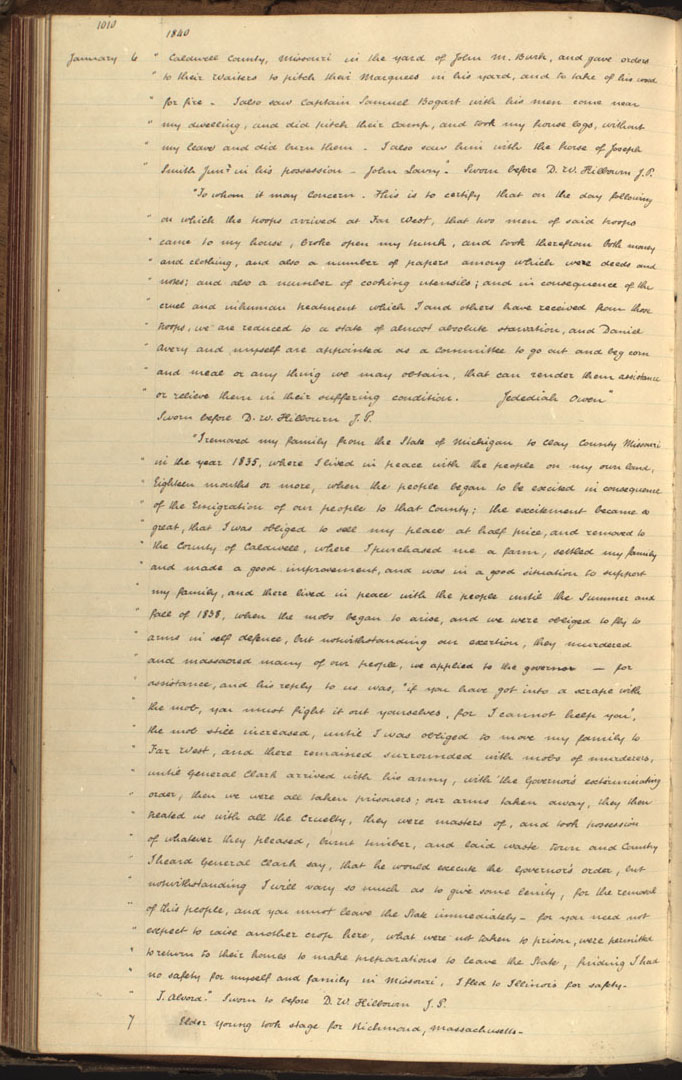 1010
1840
January 6 " Caldwell County, Missouri in the yard of John M. Burk, and gave orders
" to their Waiters to pitch their Marquees in his yard, and to take of his wood
" for fire - I also saw Captain Samuel Bogart with his men come near
" my dwelling, and did pitch their Camp, and took my house logs, without
" my leave and did burn them. - I also saw him with the horse of Joseph
" Smith Junr. in his possession - John Lowry". Sworn before D. W. Hilbourn J. P.
"To whom it may concern. - This is to certify that on the day following
" on which the troops arrived at Far West, that two men of said troops
" came to my house, broke open my trunk, and took therefrom both money
" and clothing, and also a number of papers among which were deeds and
" notes; and also a number of cooking utensils; and in consequence of the
" cruel and inhuman treatment which I and others have received from those
" troops, we are reduced to a state of almost absolute starvation, and Daniel
" Avery and myself are appointed as a Committee to go out and beg corn
" and meal or any thing we may obtain, that can render them assistance
" or relieve them in their suffering condition. Jedediah Owen"
Sworn before D. W. Hilbourn J. P.
"I removed my family from the State of Michigan to Clay County Missouri
" in the year 1835, where I lived in peace with the people on my own land,
" Eighteen months or more, when the people began to be excited in consequence
" of the Emigration of our people to that County; the excitement became so
" great, that I was obliged to sell my place at half price, and removed to
" the County of Caldwell, where I purchased me a farm, settled my family
" and made a good improvement, and was in a good situation to support
" my family, and there lived in peace with the people until the Summer and
" Fall of 1838, when the mobs began to arise, and we were obliged to fly to
" arms in self defence, but notwithstanding our exertion, they murdered
" and massacred many of our people, we applied to the governor — for
" assistance, and his reply to us was, "if you have got into a scrape with
" the mob, you must fight it out yourselves, for I cannot help you",
" the mob still increased, until I was obliged to move my family to
" Far West, and there remained surrounded with mobs of murderers,
" until General Clark arrived with his army, with the Governor's exterminating
" order, then we were all taken prisoners; our arms taken away, they then
" treated us with all the Cruelty, they were masters of, and took possession
" of whatever they pleased, burnt timber, and laid waste town and Country
" I heard General Clark say, that he would execute the Governor's order, but
" notwithstanding I will vary so much as to give some lenity, for the removal
" of this people, and you must leave the State immediately - for you need not
" expect to raise another crop here, what were not taken to prison, were permitted
" to return to their homes to make preparations to leave the State, finding I had
" no safety for myself and family in Missouri, I fled to Illinois for safety-
" T. Alvord." Sworn to before D. W. Hilbourn J. P.
7 Elder Young took stage for Richmond, Massachusetts -